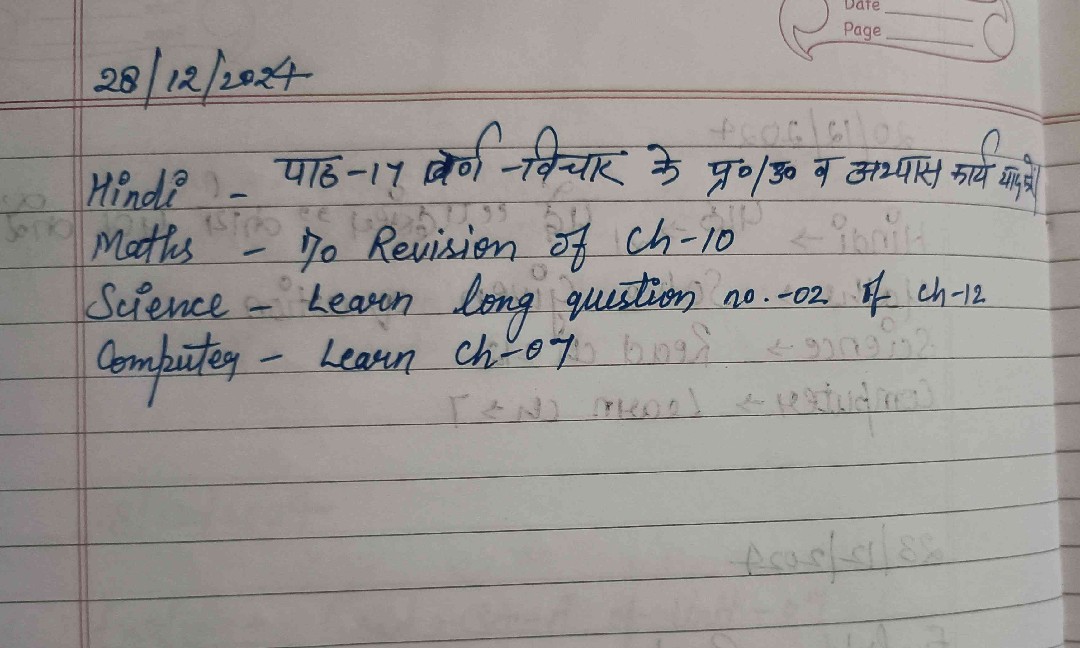 Date
Page
28/12/2024
Hindi - पाठ-17 वर्ण-विचार के प्र०/उ० व अभ्यास कार्य याद करो
Maths - Do Revision of Ch-10
Science - Learn long question no.-02 of ch-12
Computer - Learn Ch-07